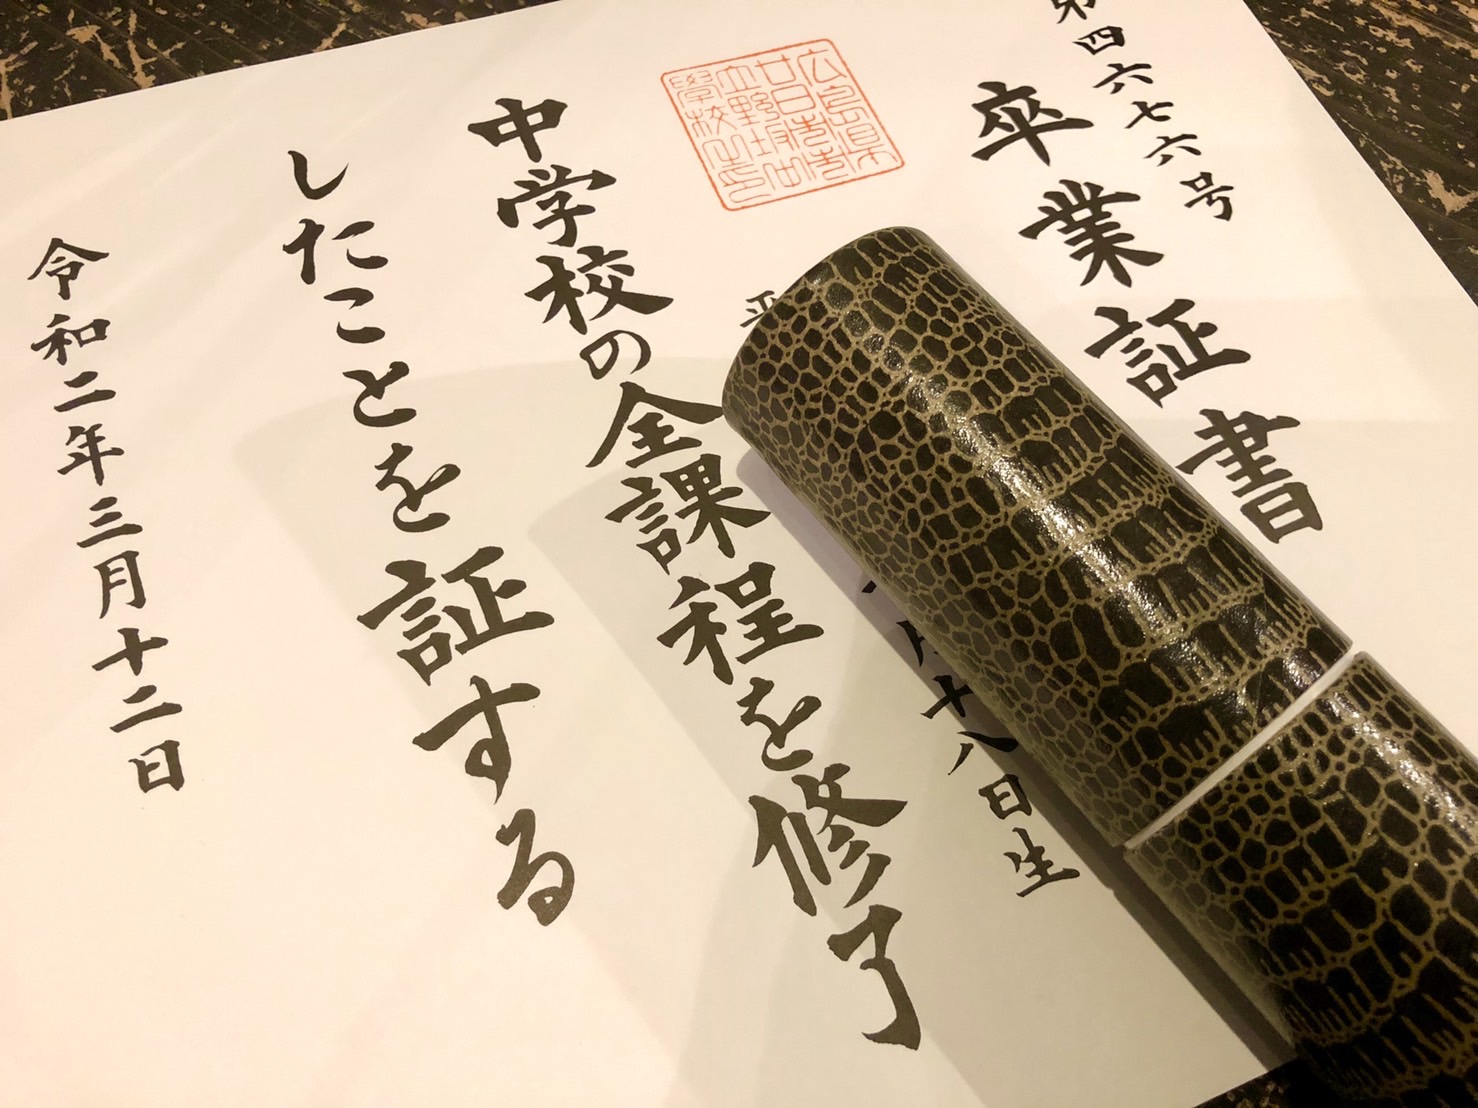 第四六七六号
卒業証書
広島県
廿日市市
立野坂中
學校之印
平
月十八日生
中学校の全課程を修了
したことを証する
令和二年三月十二日